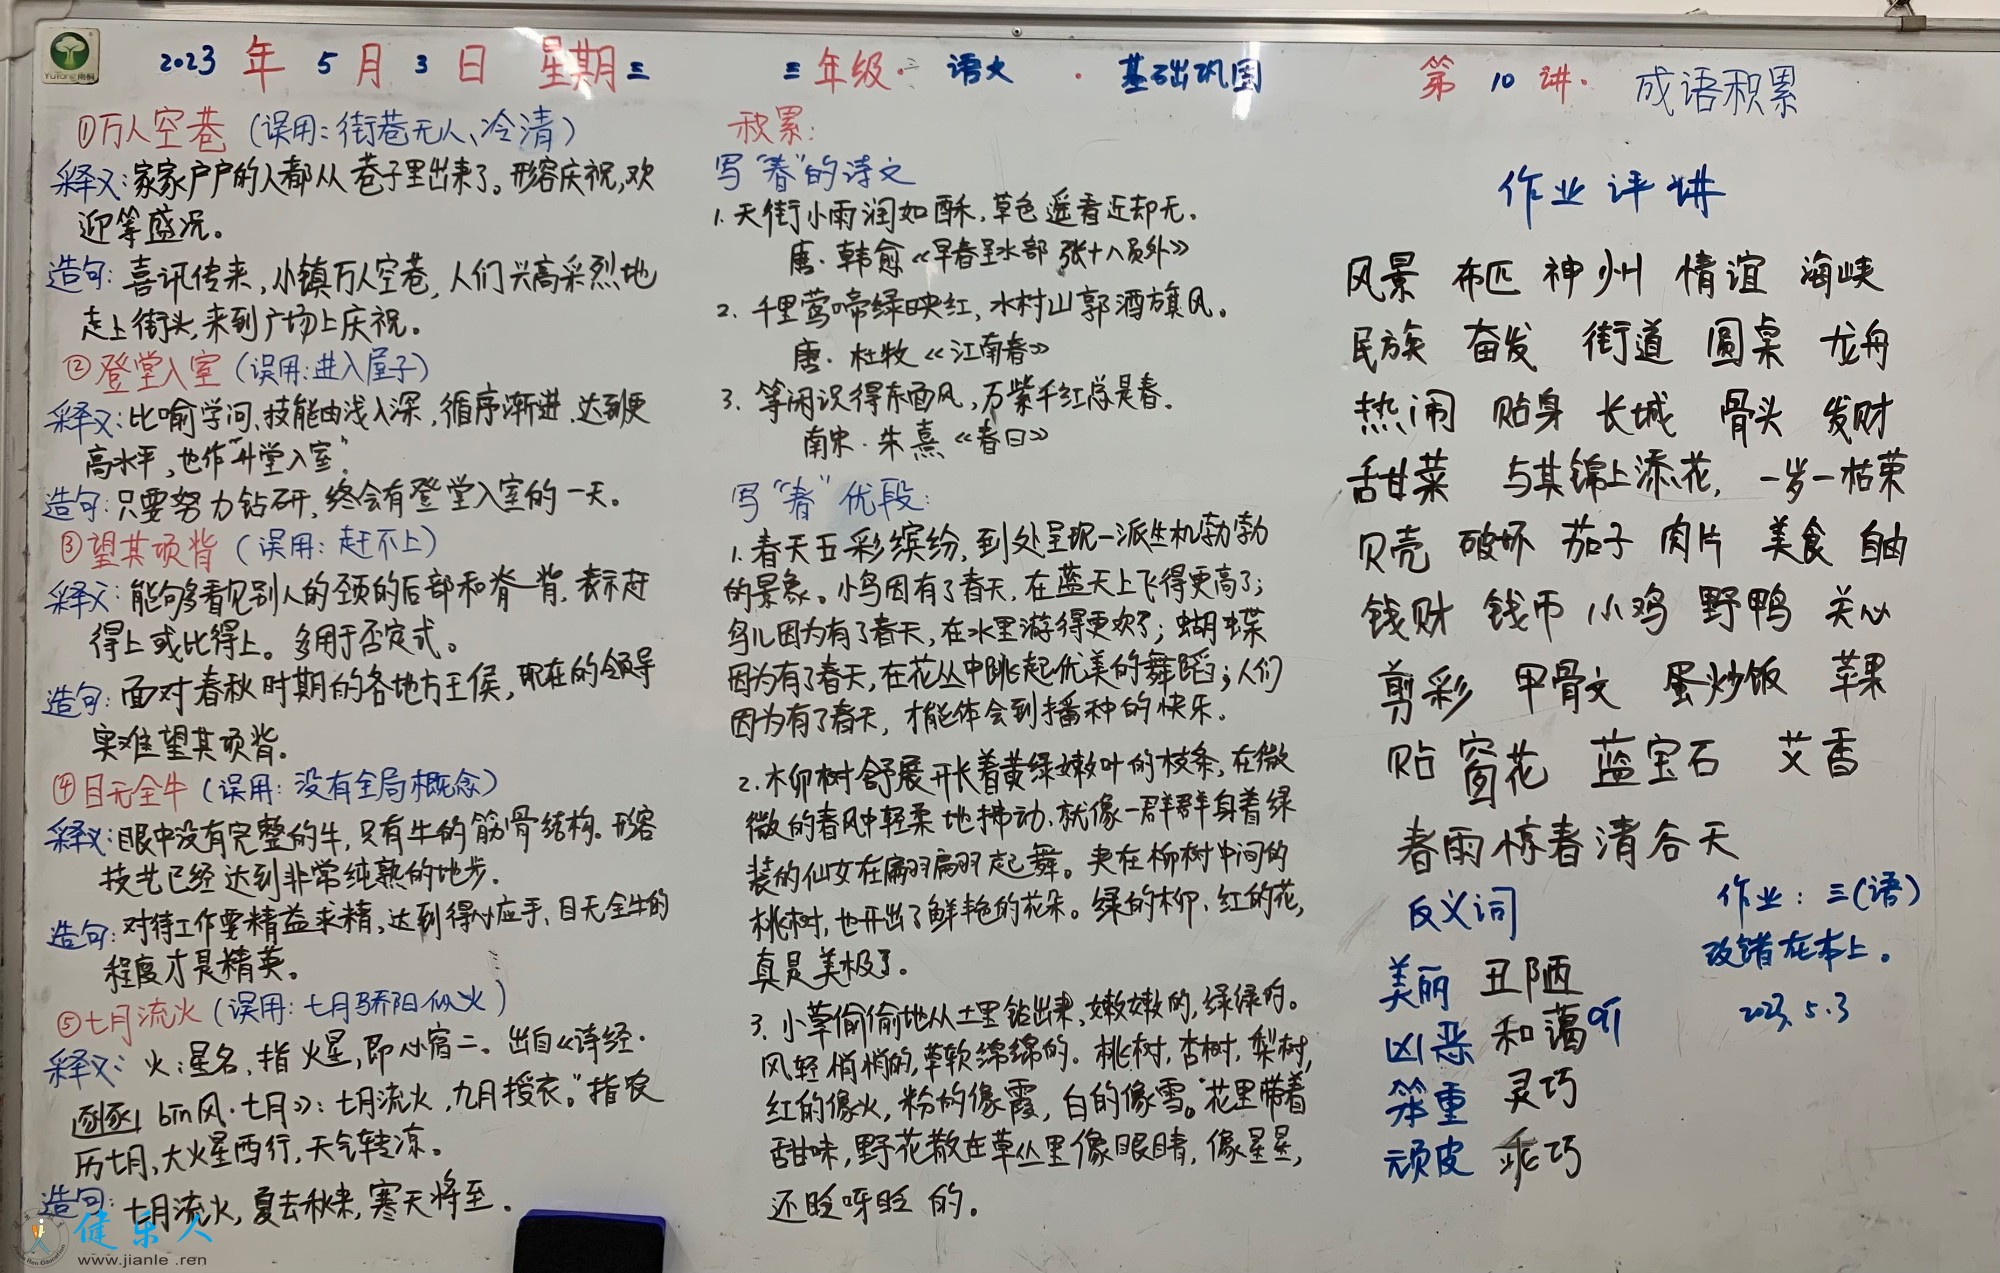 2023 年 5 月 3 日 星期三
三年级· 语文 · 基础巩固
第 10 讲· 成语积累
①万人空巷 (误用: 街巷无人、冷清)
释义: 家家户户的人都从巷子里出来了。形容庆祝, 欢
迎等盛况。
造句: 喜讯传来, 小镇万人空巷, 人们兴高采烈地
走上街头, 来到广场上庆祝。
②登堂入室 (误用: 进入屋子)
释义: 比喻学问、技能由浅入深, 循序渐进、达到更
高水平, 也作"升堂入室"。
造句: 只要努力钻研, 终会有登堂入室的一天。
③望其项背 (误用: 赶不上)
释义: 能够看见别人的颈的后部和脊背, 表示赶
得上或比得上。多用于否定式。
造句: 面对春秋时期的各地方王侯, 现在的领导
实难望其项背。
④目无全牛 (误用: 没有全局概念)
释义: 眼中没有完整的牛, 只有牛的筋骨结构。形容
技艺已经达到非常纯熟的地步.
造句: 对待工作要精益求精, 达到得心应手、目无全牛的
程度才是精英。
⑤七月流火 (误用: 七月骄阳似火)
释义: 火: 星名, 指火星, 即心宿二。出自《诗经·
bīn风·七月》: 七月流火, 九月授衣。"指农
历七月, 大火星西行, 天气转凉。
造句: 七月流火, 夏去秋来, 寒天将至.
健乐人
www.jianle.ren
积累:
写"春"的诗文
1. 天街小雨润如酥, 草色遥看近却无。
唐·韩愈《早春呈水部张十八员外》
2. 千里莺啼绿映红, 水村山郭酒旗风。
唐·杜牧《江南春》
3. 等闲识得东西风, 万紫千红总是春。
南宋·朱熹《春日》
写"春"优段:
1. 春天五彩缤纷, 到处呈现一派生机勃勃
的景象。小鸟因有了春天, 在蓝天上飞得更高了;
鸟儿因为有了春天, 在水里游得更欢了; 蝴蝶
因为有了春天, 在花丛中跳起优美的舞蹈; 人们
因为有了春天, 才能体会到播种的快乐.
2. 柳树舒展开长着黄绿嫩叶的枝条, 在微
微的春风中轻柔地拂动, 就像一群群身着绿
装的仙女在翩翩起舞。夹在柳树中间的
桃树, 也开出了鲜艳的花朵。绿的柳, 红的花,
真是美极了。
3. 小草偷偷地从土里钻出来, 嫩嫩的, 绿绿的。
风轻悄悄的, 草软绵绵的。桃树, 杏树, 梨树,
红的像火, 粉的像霞, 白的像雪。花里带着
甜味, 野花散在草丛里像眼睛, 像星星,
还眨呀眨的。
作业评讲
风景 布匹 神州 情谊 海峡
民族 奋发 街道 圆桌 龙舟
热闹 贴身 长城 骨头 发财
甜菜 与其锦上添花, 一岁一枯荣
贝壳 破坏 茄子 肉片 美食 自由
钱财 钱币 小鸡 野鸭 关心
剪彩 甲骨文 蛋炒饭 苹果
贴窗花 蓝宝石 艾香
春雨惊春清谷天
反义词
美丽 丑陋
凶恶 和蔼
笨重 灵巧
顽皮 乖巧
作业: 三(语)
改错在本上。
2023.5.3